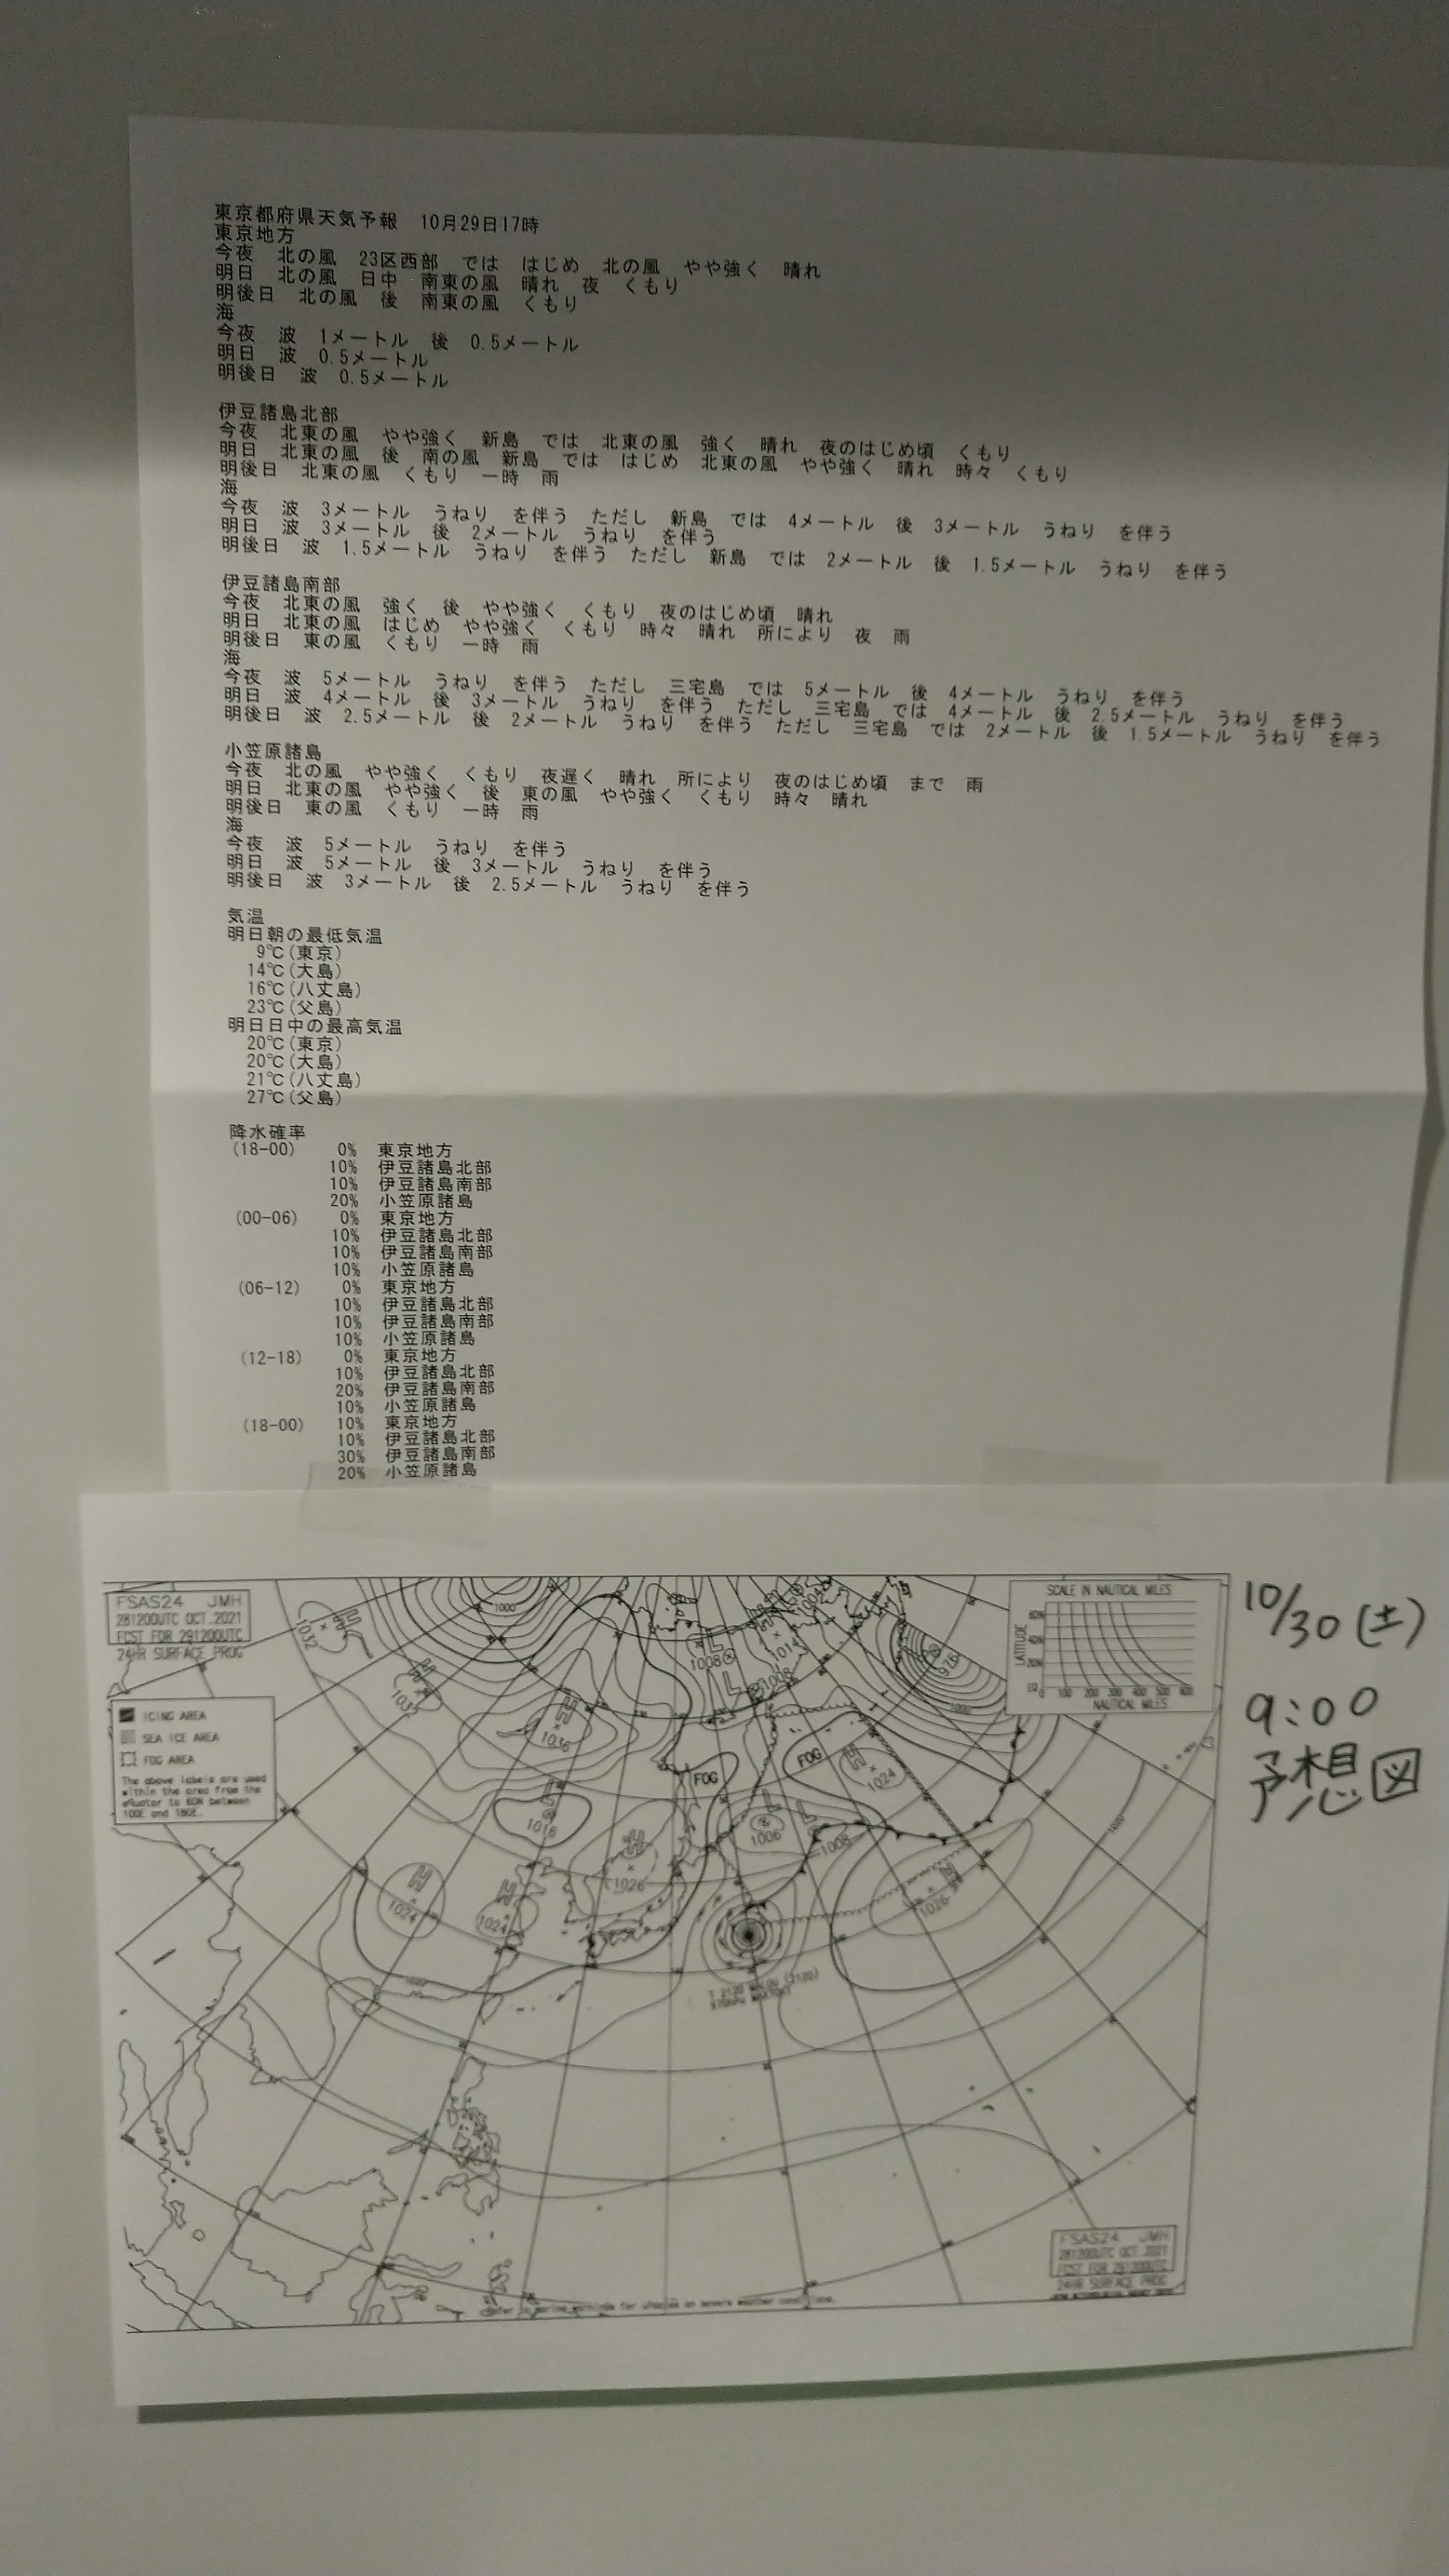 東京都府県天気予報 10月29日17時
東京地方
今夜 北の風 23区西部 では はじめ 北の風 やや強く 晴れ
明日 北の風 日中 南東の風 晴れ 夜 くもり
明後日 北の風 後 南東の風 くもり
海
今夜 波 1メートル 後 0.5メートル
明日 波 0.5メートル
明後日 波 0.5メートル
伊豆諸島北部
今夜 北東の風 やや強く 新島 では 北東の風 強く 晴れ 夜のはじめ頃 くもり
明日 北東の風 後 南の風 新島 では はじめ 北東の風 やや強く 晴れ 時々 くもり
明後日 北東の風 くもり 一時 雨
海
今夜 波 3メートル うねり を伴う ただし 新島 では 4メートル 後 3メートル うねり を伴う
明日 波 3メートル 後 2メートル うねり を伴う
明後日 波 1.5メートル うねり を伴う ただし 新島 では 2メートル 後 1.5メートル うねり を伴う
伊豆諸島南部
今夜 北東の風 強く 後 やや強く くもり 夜のはじめ頃 晴れ
明日 北東の風 はじめ やや強く くもり 時々 晴れ 所により 夜 雨
明後日 東の風 くもり 一時 雨
海
今夜 波 5メートル うねり を伴う ただし 三宅島 では 5メートル 後 4メートル うねり を伴う
明日 波 4メートル 後 3メートル うねり を伴う ただし 三宅島 では 4メートル 後 2.5メートル うねり を伴う
明後日 波 2.5メートル 後 2メートル うねり を伴う ただし 三宅島 では 2メートル 後 1.5メートル うねり を伴う
小笠原諸島
今夜 北の風 やや強く くもり 夜遅く 晴れ 所により 夜のはじめ頃 まで 雨
明日 北東の風 やや強く 後 東の風 やや強く くもり 時々 晴れ
明後日 東の風 くもり 一時 雨
海
今夜 波 5メートル うねり を伴う
明日 波 5メートル 後 3メートル うねり を伴う
明後日 波 3メートル 後 2.5メートル うねり を伴う
気温
明日朝の最低気温
9℃(東京)
14℃(大島)
16℃(八丈島)
23℃(父島)
明日日中の最高気温
20℃(東京)
20℃(大島)
21℃(八丈島)
27℃(父島)
降水確率
(18-00) 0% 東京地方
10% 伊豆諸島北部
10% 伊豆諸島南部
20% 小笠原諸島
(00-06) 0% 東京地方
10% 伊豆諸島北部
10% 伊豆諸島南部
10% 小笠原諸島
(06-12) 0% 東京地方
10% 伊豆諸島北部
10% 伊豆諸島南部
10% 小笠原諸島
(12-18) 0% 東京地方
10% 伊豆諸島北部
20% 伊豆諸島南部
10% 小笠原諸島
(18-00) 10% 東京地方
10% 伊豆諸島北部
30% 伊豆諸島南部
20% 小笠原諸島
FSAS24 JMH
281200UTC OCT.2021
FCST FOR 291200UTC
24HR SURFACE PROG
ICING AREA
SEA ICE AREA
FOG AREA
The above labels are used
within the area from the
equator to 60N between
100E and 180E.
SCALE IN NAUTICAL MILES
LATITUDE
60N
40N
20N
EQ
0 100 200 300 400 500 600
NAUTICAL MILES
10/30(土)
9:00
予想図
H
1032
H
H
1036
1000
L
1008
L
1008
H
1014
976
1000
FOG
FOG
H
1024
L
1016
L
1006
L
1008
H
1024
H
1024
H
1026
H
1026
1020
1020
FSAS24 JMH
281200UTC OCT.2021
FCST FOR 291200UTC
24HR SURFACE PROG